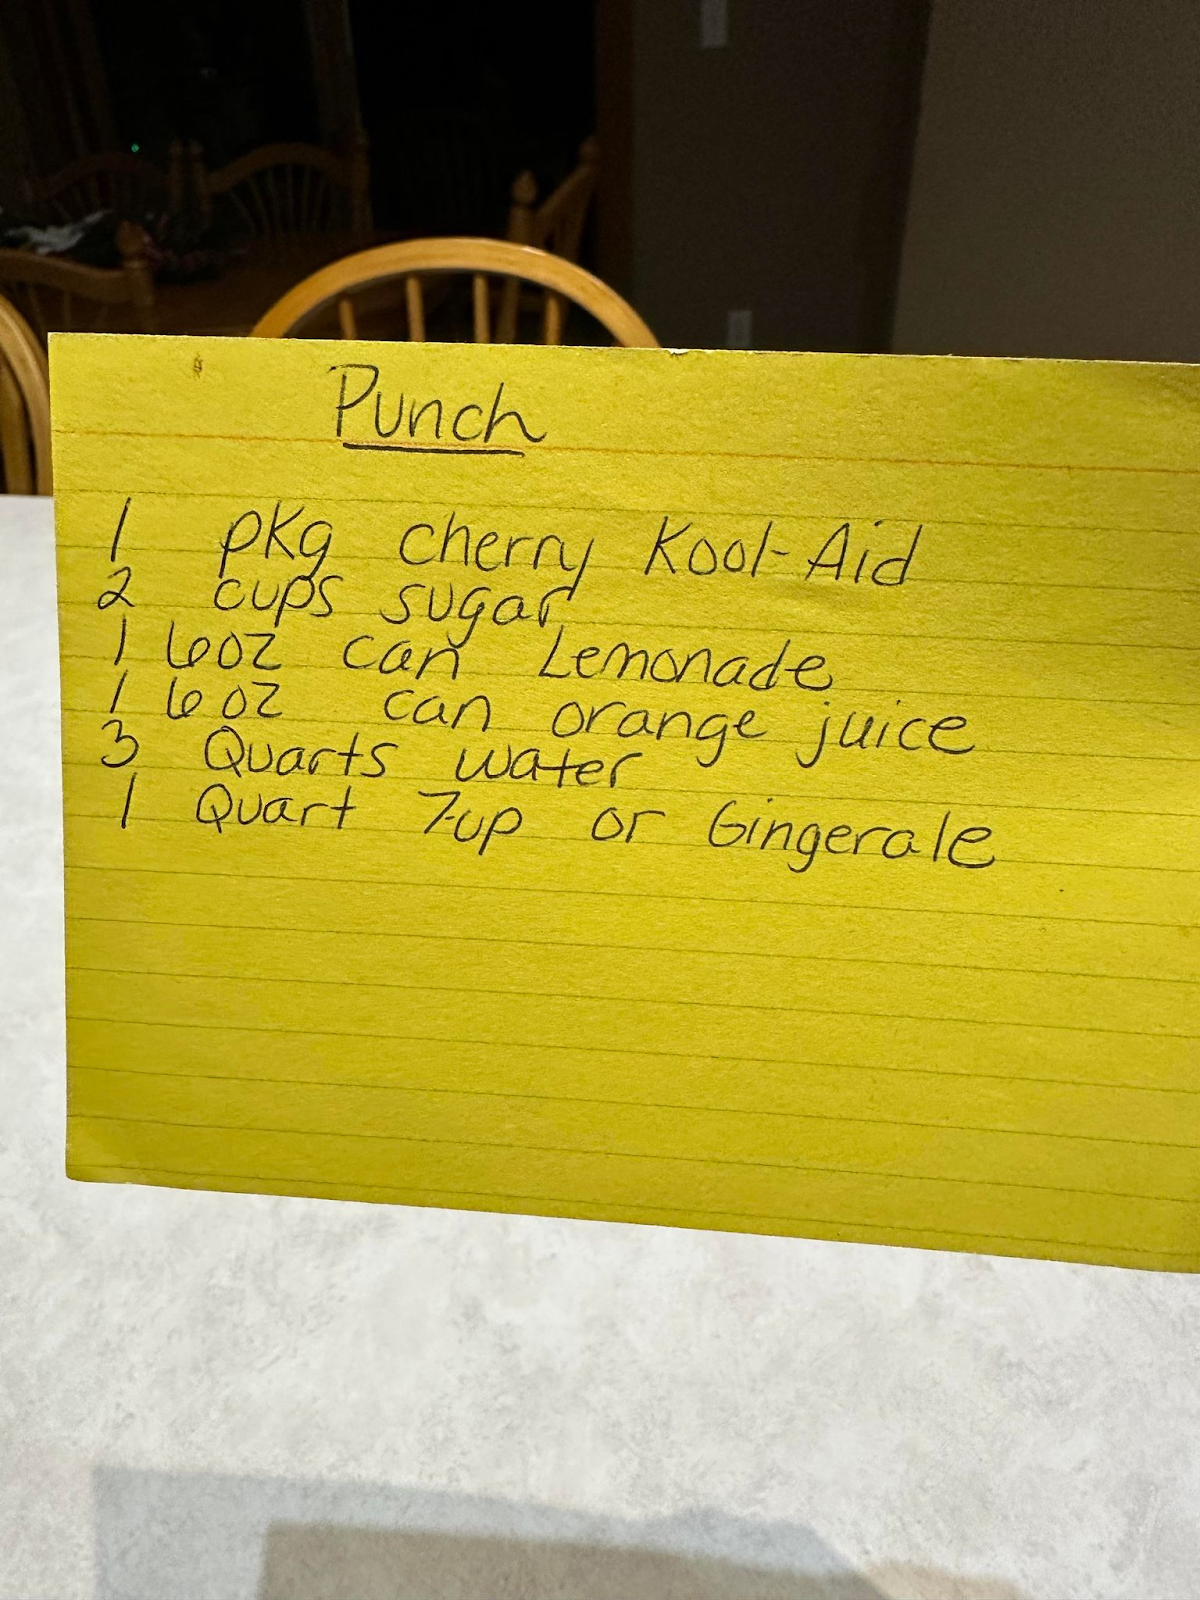 Punch
1 pkg cherry Kool-Aid
2 cups sugar
1 6oz can Lemonade
1 6oz can orange juice
3 Quarts water
1 Quart 7-up or Gingerale